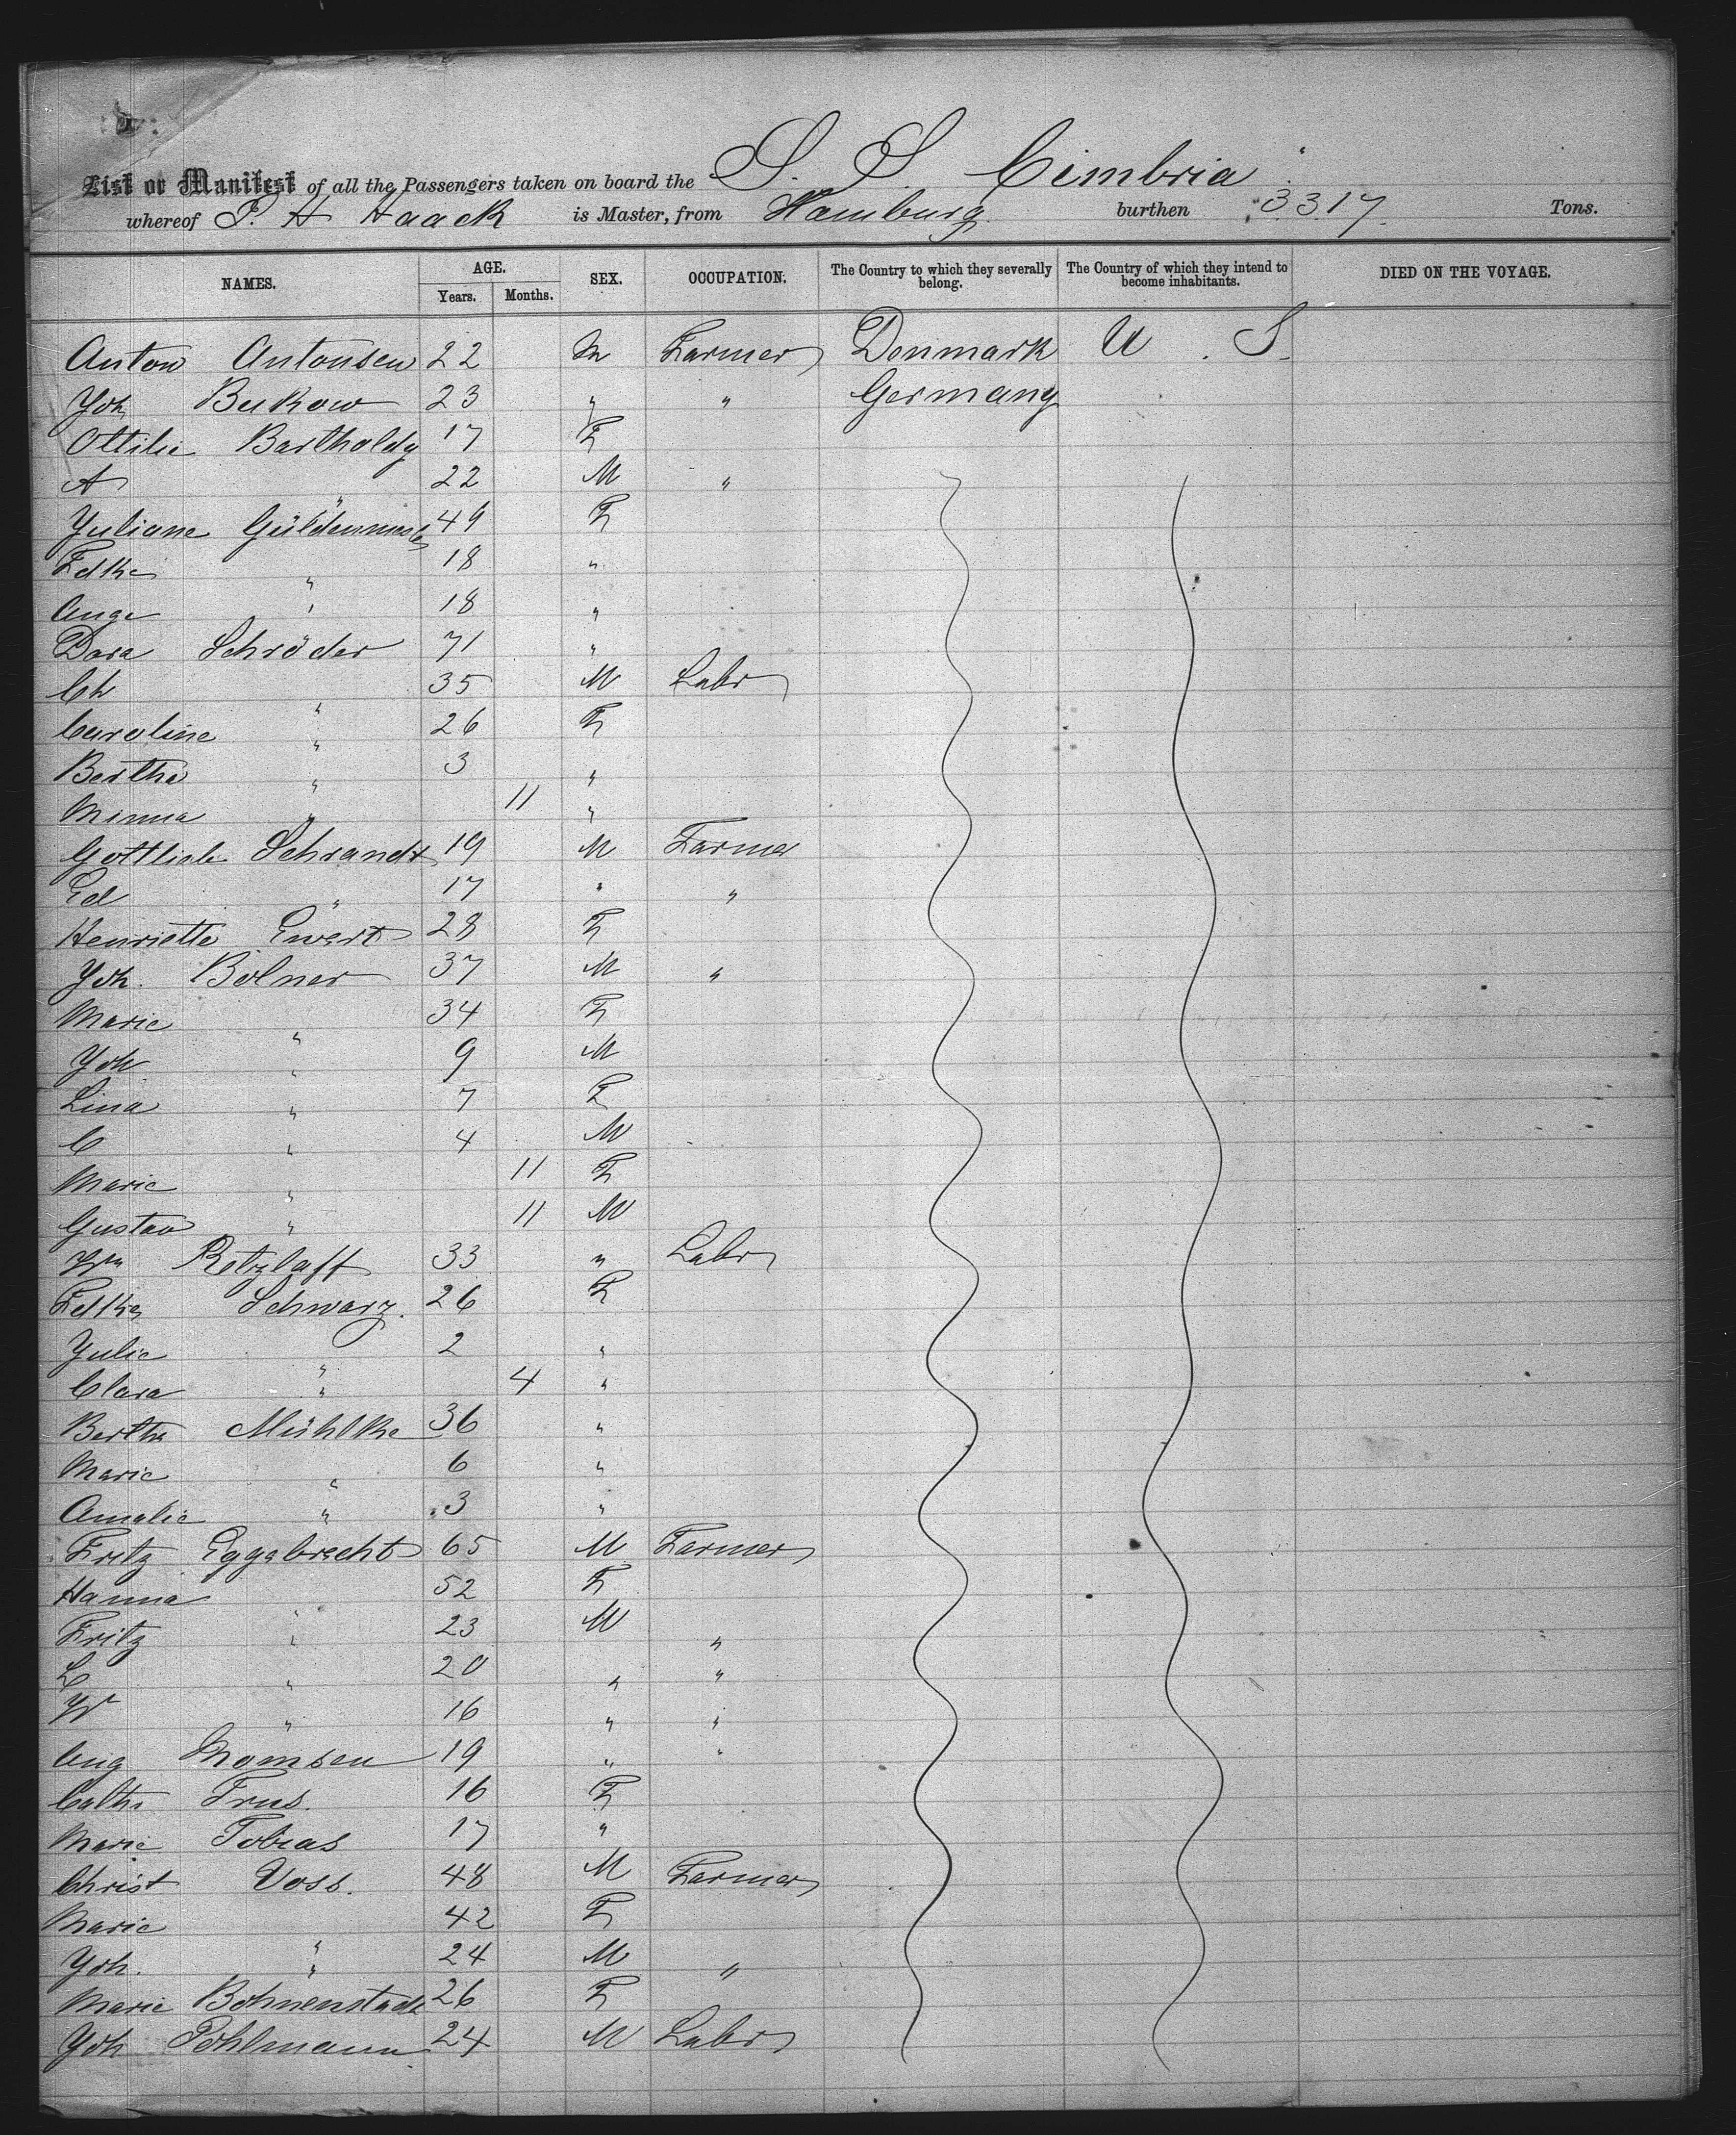 List or Manifest of all the Passengers taken on board the S. S. Cimbria
whereof P. H Haack is Master, from Hamburg burthen 3317 Tons.
NAMES. AGE. Years. Months. SEX. OCCUPATION. The Country to which they severally belong. The Country of which they intend to become inhabitants. DIED ON THE VOYAGE.
Anton Antonsen 22 M Farmer Denmark U. S.
Joh Bukow 23 " " Germany
Ottilie Bartholdy 17 F
A " 22 M "
Juliane 49 F
Fdke " 18 "
Auge " 18 "
Dora Schröder 71 "
Ch " 35 M Labr
Caroline " 26 F
Bertha " 3 "
Minna " 11 "
Gottlieb Schrandt 19 M Farmer
Ed " 17 " "
Henriette Ewert 28 F
Joh. Bolner 37 M "
Marie " 34 F
Joh " 9 M
Lina " 7 F
C " 4 M
Marie " 11 F
Gustav " 11 M
Wm Retzlaff 33 " Labr
Fdke Schwarz. 26 F
Julie " 2 "
Clara " 4 "
Bertha Mühlke 36 "
Marie " 6 "
Amalie " 3 "
Fritz Eggebrecht 65 M Farmer
Hanna " 52 F
Fritz " 23 M "
L " 20 " "
W " 16 " "
Aug Momsen 19 " "
Cathr Frus. 16 F
Marie Tobias 17 "
Christ Voss. 48 M Farmer
Marie " 42 F
Joh. " 24 M "
Marie Bohnenstade 26 F
Joh Pohlmann 24 M Labr